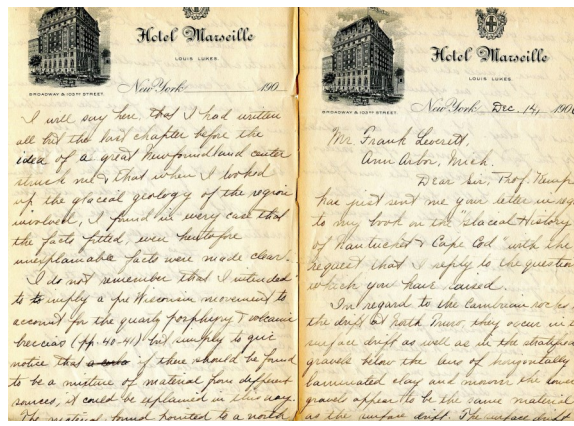 Hotel Marseille
LOUIS LUKES.
BROADWAY & 103RD STREET.
New York 190
I will say here that I had written
all but the last chapter before the
idea of a great Newfoundland center
struck me & that when I looked
up the glacial geology of the region
involved, I found in every case that
the facts fitted, even heretofore
unexplainable facts were made clear.
I do not remember that I intended
to to imply a pre Wisconsin movement to
account for the quartz porphyry & volcanic
breccias (pp. 40-41) but simply to give
notice that if there should be found
to be a mixture of material from different
sources, it could be explained in this way.
The material found pointed to a north
Hotel Marseille
LOUIS LUKES.
BROADWAY & 103RD STREET.
New York Dec 14, 190
Mr Frank Leverett,
Ann Arbor, Mich.
Dear Sir, Prof. Kemp
has just sent me your letter in reg
to my book on the "Glacial History
of Nantucket & Cape Cod" with the
request that I reply to the question
which you have raised.
In regard to the Cambrian rocks in
the drift at North Truro, they occur in the
surface drift as well as in the stratified
gravels below the area of horizontally
laminated clay and more in the lower
gravels appear to be the same material
as the surface drift. The surface drift